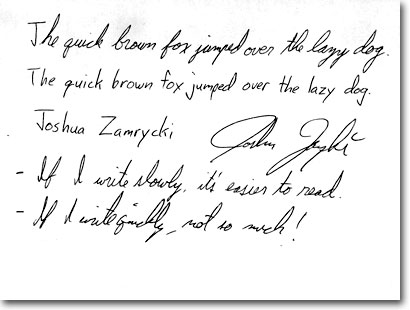 The quick brown fox jumped over the lazy dog.
The quick brown fox jumped over the lazy dog.
Joshua Zamrycki Joshua
- If I write slowly, it's easier to read.
- If I write quickly, not so much!